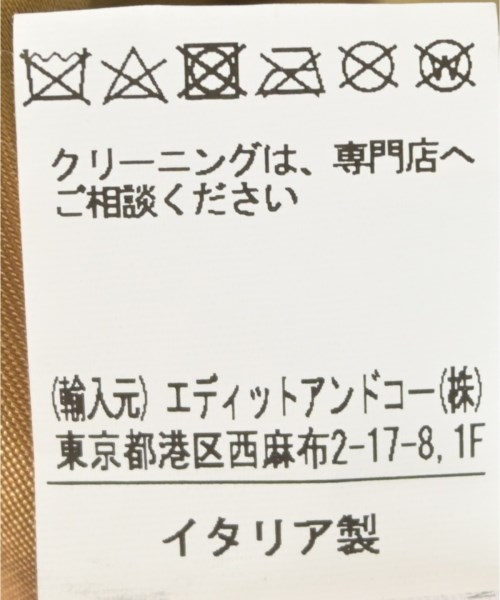 W
クリーニングは、専門店へ
ご相談ください
(輸入元) エディットアンドコー(株)
東京都港区西麻布2-17-8, 1F
イタリア製